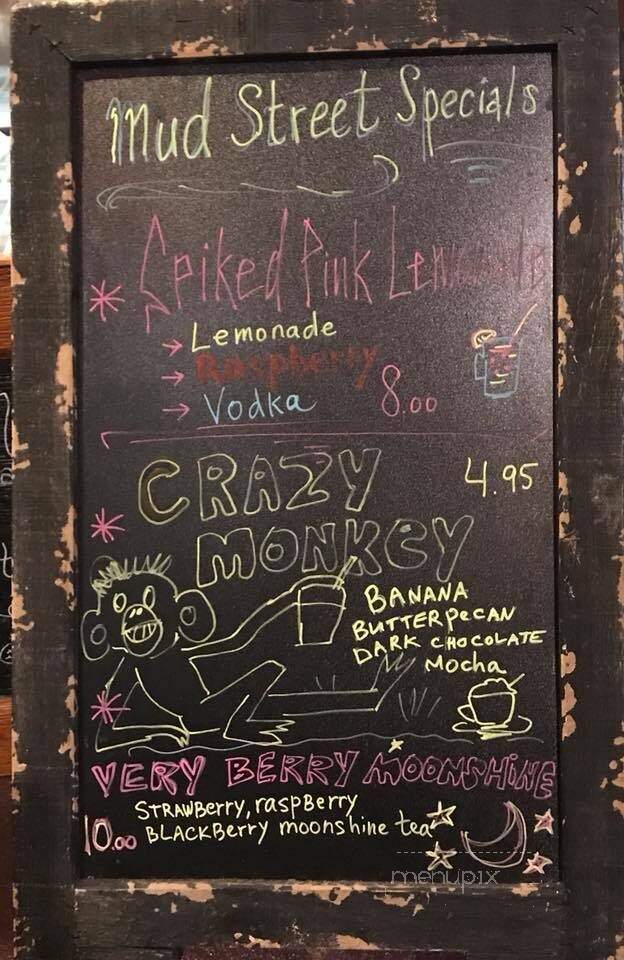 Mud Street Specials
Spiked Pink Lemonade
Lemonade
Raspberry
Vodka 8.00
CRAZY 4.95
MONKEY
BANANA
BUTTERPECAN
DARK CHOCOLATE
Mocha
VERY BERRY MOONSHINE
STRAWBERRY, raspBerry
10.00 BLACKBerry moonshine tea
menupix